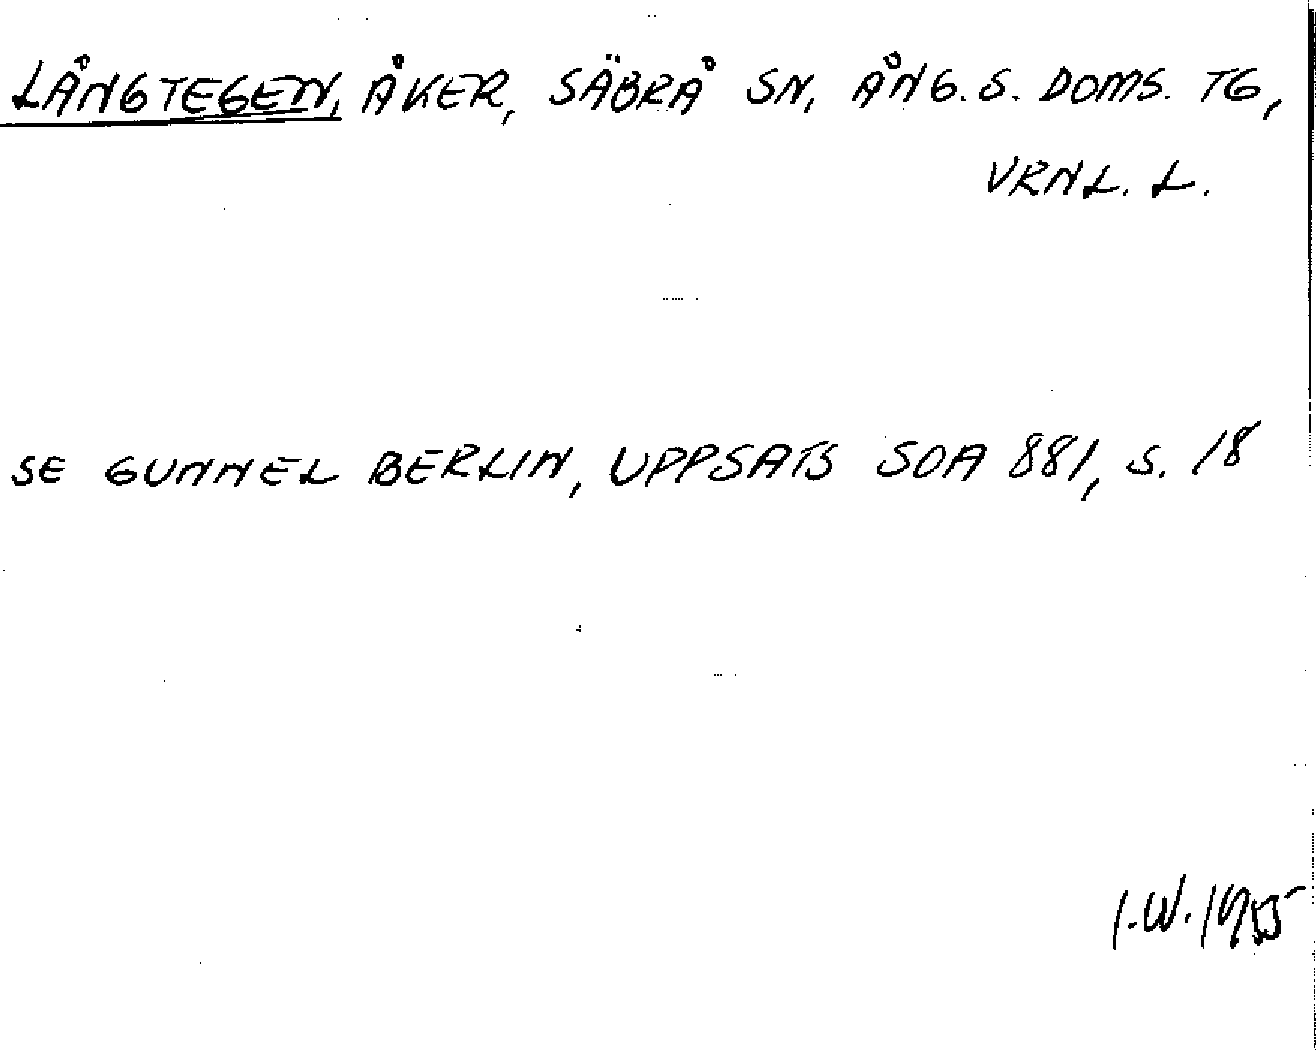 LÅNGTEGEN, ÅKER, SÄBRÅ SN, ÅNG. S. DOMS. TG,
VRNL. L.
SE GUNNEL BERLIN, UPPSATS SOA 881, S. 18
I.W.